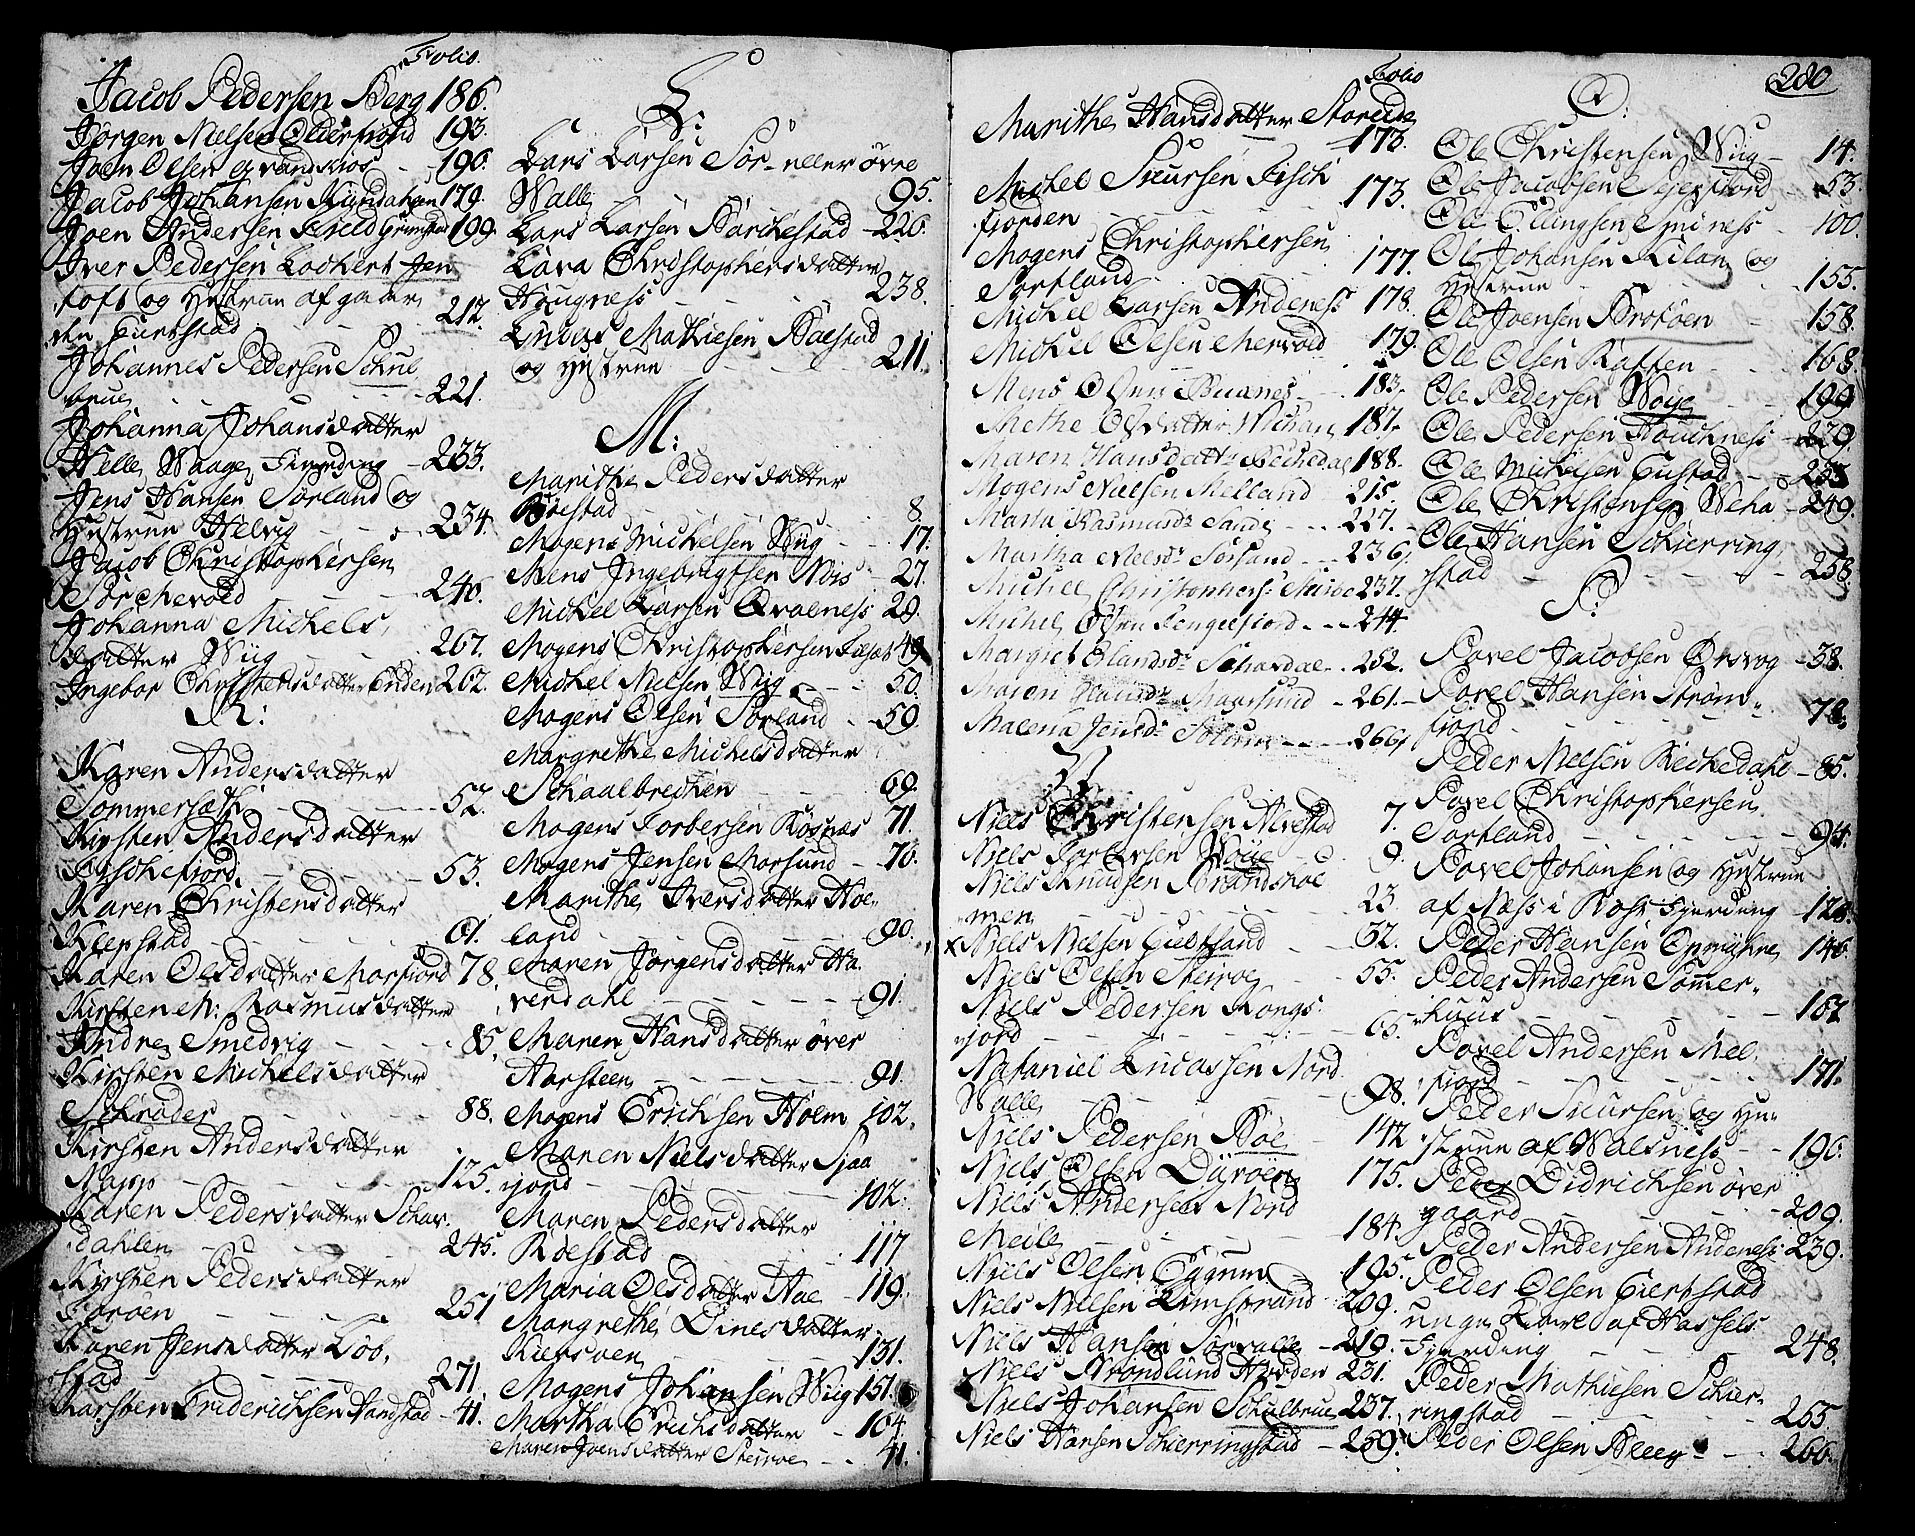 Folio.
Jacob Pedersen Berg 186.
Jörgen Nielsen Olderfiord 193.
Joen Olsen 196.
Jacob Johansen 179.
Joen Andersen Field Grimstad 199.
Iver Pedersen Lochert Jen
toft og Hustrue af gaar
den Giertstad 212.
Johannes Pedersen Schul
brue 221.
Johanna Johansdatter
Helle Waage Fierding 233.
Jens Hansen Sörland og
Hustrue Helvig 234.
Jacob Christophersen
Sör 246.
Johanna Michels
datter Wiig 267.
Ingebor datter Enden 262.
K:
Karen Andersdatter
Sommersæth 52.
Kirsten Andersdatter
53.
Karen Christensdatter
Klepstad 61.
Karen Olsdatter Morfiord 78.
Kirsten M: Rasmusdatter
Andre Smedvig 85.
Kirsten Michelsdatter
Schrader 88.
Kirsten Andersdatter
Napp 125.
Karen Pedersdatter Schar
dahlen 245.
Kirsten Pedersdatter
251
Karen Jensdatter Löb
stad 271.
Karsten Friderichsen Sandstad 41.
L:
Lars Larsen Sör- eller övre
Walle 95.
Lars Larsen Börchestad 226.
Lava Christophersdatter
Hougness 238.
Lucas Mathiesen Böestad
og Hustrue 211.
M:
Marithe Pedersdatter
Böestad 8.
Mogens Michelsen Wiig 17.
Mens Ingebrigtsen Nois 27.
Michel Larsen Qvalness 29.
Mogens Christophersen 49
Michel Nielsen Wiig 50.
Mogens Olsen Sörland 59.
Margrethe Michelsdatter
Schaalbrechen 69.
Mogens Torbersen Rösnæs 71.
Mogens Jensen Morsund 76.
Marithe Iversdatter Hoe
land 90.
Maren Jörgensdatter Ha
verdahl 91.
Maren Hansdatter över
Aarsteen 91.
Mogens Erichsen Holm 102.
Maren Nielsdatter Sjaa
fjord 102.
Maren Pedersdatter
Röestad 117
Maria Olsdatter Hoe 119.
Margrethe Dinesdatter
131.
Mogens Johansen Wiig 151.
Martha Erichsdatter 164.
Maren Joensdatter Steiroe 41.
Folio
Marithe Hansdatter Storeide
173.
Michel Siursen Fisch
fjorden 173.
Mogens Christophersen
Sortland 177.
Michel Larsen Andenes 178.
Michel Olsen 179.
Mens Olsen Buanes 183.
Methe Olsdatter 187.
Maren Hansdatter Bechedal 188.
Mogens Nielsen Melland 215.
Marta Rasmusdr Sande 227.
Martha Nielsdr Sörland 236.
Michel Christophers: 237.
Michel Olsen Tengelfiord 244.
Margret Schardal 252.
Maren Maarsund 261.
Malena Jensdr 266.
N
Niels Christensen Alvestad 7.
Niels Torbersen Wöye 9.
Niels Knudsen Brandshol
men 23.
x Niels Nielsen Giertstad 32.
Niels Olsen Steiroe 55.
Niels Pedersen Kongs
fjord 65.
Nataniel Lucassen Nord
Walle 98.
Niels Pedersen Böe 142
Niels Olsen Dyröen 175.
Niels Andersen Nord
Meile 184.
Niels Olsen Eggum 195.
Niels Nielsen Limstrand 209.
Niels Hansen Sörvalle 219.
Niels Nordlund 231.
Niels Johansen Schulbrue 237.
Niels Hansen Schierringstad 259.
280
O:
Ole Christensen Wiig 14.
Ole Jacobsen Sejerfiord 53.
Ole Ellingsen 100.
Ole Johansen Kilan og
Hustrue 155.
Ole Joensen Broköen 158.
Ole Olsen Raften 168.
Ole Pedersen Wöye 199
Ole Pedersen Houchness 229.
Ole Michelsen Giestad
Ole Christensen 249.
Ole Hansen Schierring
stad 258.
P:
Povel Jacobsen Örsvog 58.
Povel Hansen Ström
fjord 78.
Peder Nielsen Bechedahl 85.
Povel Christophersen
Sortland 94.
Povel Johansen og Hustrue
af Næss i Borge Fjerding 128.
Peder Hansen 146.
Peder Andersen Sommer
huus 167
Povel Andersen Mel
fjord 171.
Peder Siursen og Hu
strue af Walsness 196.
Peder Didrichsen över
gaard 209.
Peder Andersen Andeness 239.
Peder Olsen Giertstad
unge Karl af Hassels
Fjerding 248.
Peder Mathiesen Schier
ringstad 255
Peder Olsen Bleeg 266.